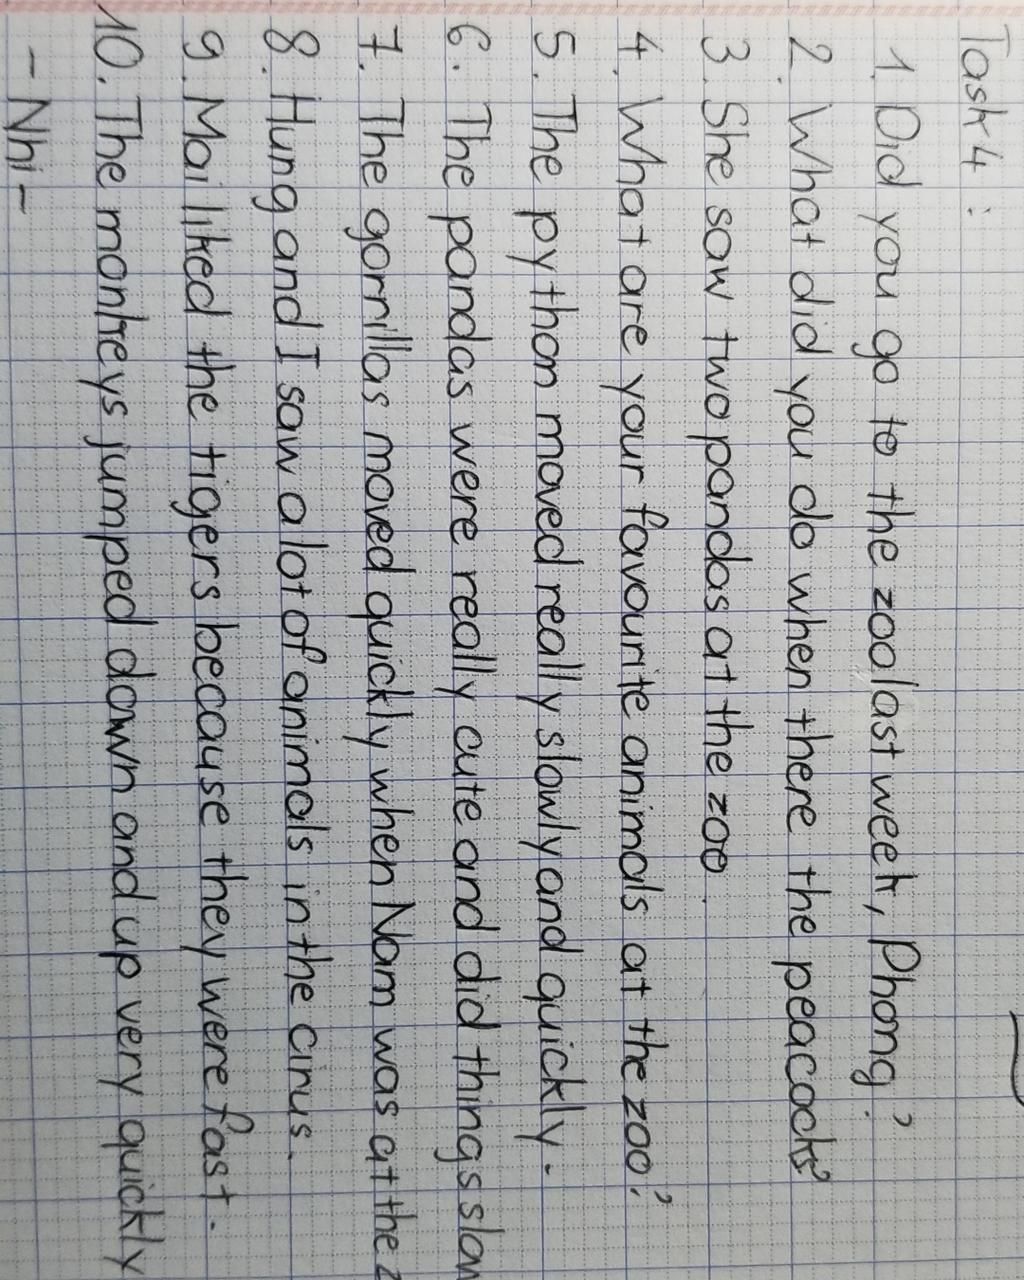 Task 4:
1. Did you go to the zoo last week, Phong?
2. What did you do when there the peacocks?
3. She saw two pandas at the zoo.
4. What are your favourite animals at the zoo?
5. The python moved really slowly and quickly.
6. The pandas were really cute and did things slow
7. The gorillas moved quickly when Nam was at the z
8. Hung and I saw a lot of animals in the cirus.
9. Mai liked the tigers because they were fast.
10. The monkeys jumped down and up very quickly
- Nhi -